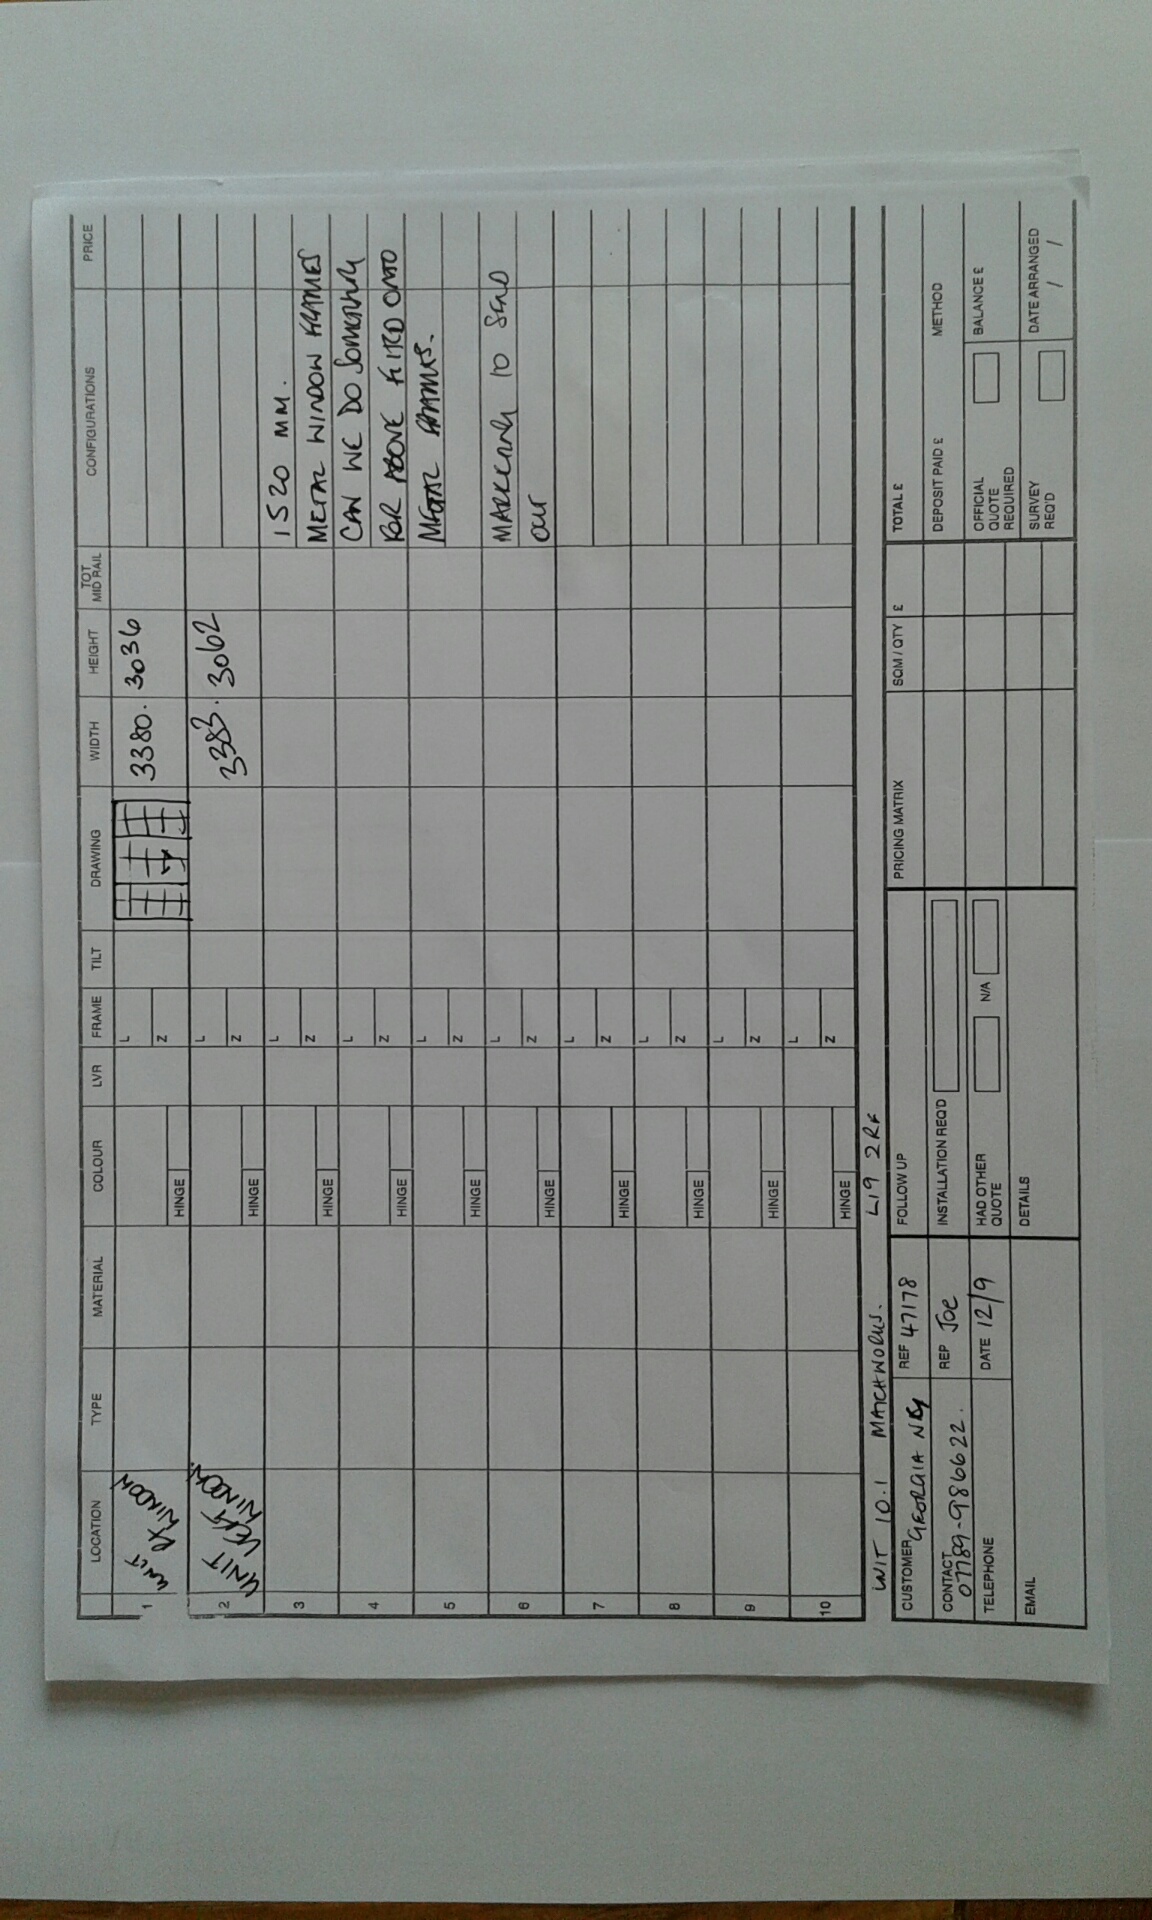 LOCATION TYPE MATERIAL COLOUR LVR FRAME TILT DRAWING WIDTH HEIGHT TOT MID RAIL CONFIGURATIONS PRICE
1 UNIT RX WINDOW HINGE L Z 3380. 3036
2 UNIT WINDOW HINGE L Z 3383. 3062
3 HINGE L Z 1520 MM.
METAL WINDOW FRAMES
4 HINGE L Z CAN WE DO SOMETHING
FOR ABOVE FITTED ONTO
5 HINGE L Z METAL FRAMES.
6 HINGE L Z MARKETING TO SEND
OUT
7 HINGE L Z
8 HINGE L Z
9 HINGE L Z
10 HINGE L Z
UNIT 10.1 MATCHWORKS. L19 2RF
CUSTOMER GEORGIA REF 47178 FOLLOW UP PRICING MATRIX SQM / QTY £ TOTAL £
CONTACT 07789-986622. REP JOE INSTALLATION REQ'D DEPOSIT PAID £ METHOD
TELEPHONE DATE 12/9 HAD OTHER QUOTE N/A OFFICIAL QUOTE REQUIRED BALANCE £
EMAIL DETAILS SURVEY REQ'D DATE ARRANGED / /